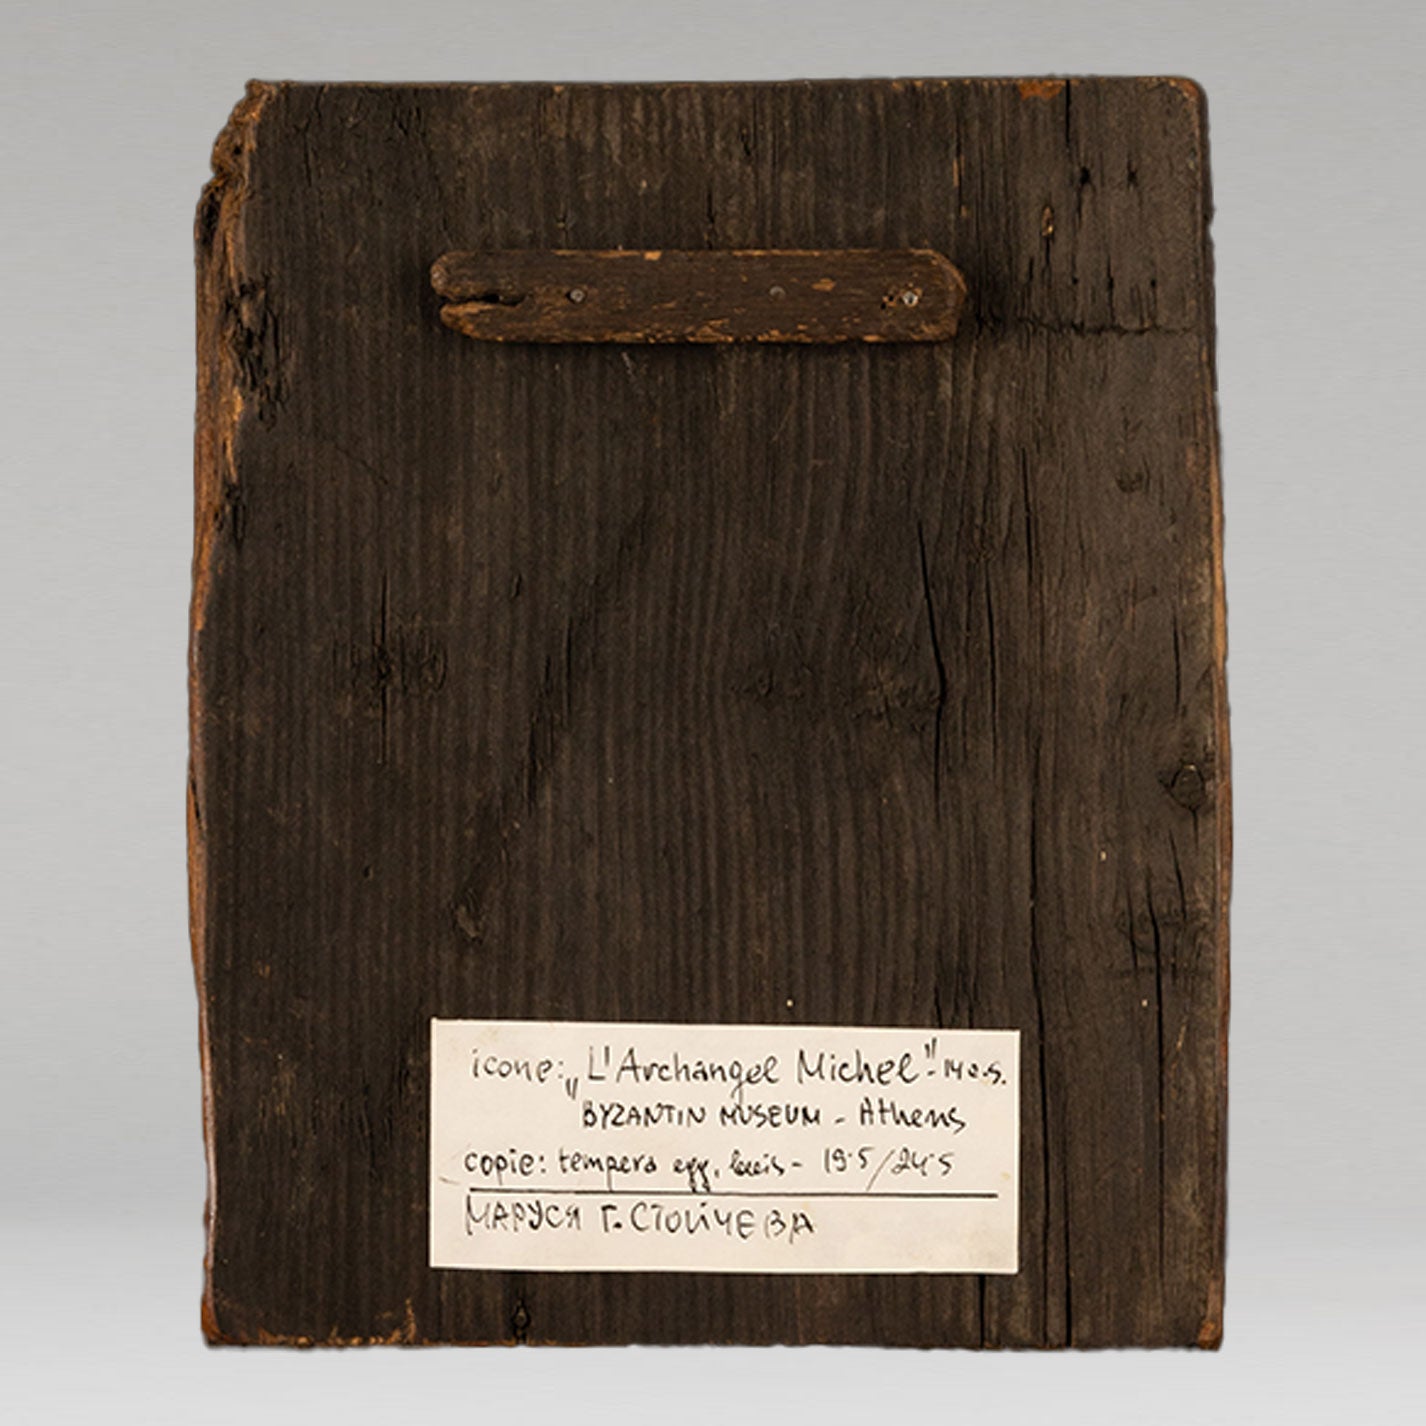 icone: „L'Archangel Michel"- 14 e.s.
BYZANTIN MUSEUM - Athens
copie: tempera egg, - 19.5/24.5
МАРУСЯ Г. СТОЙЧЕВА